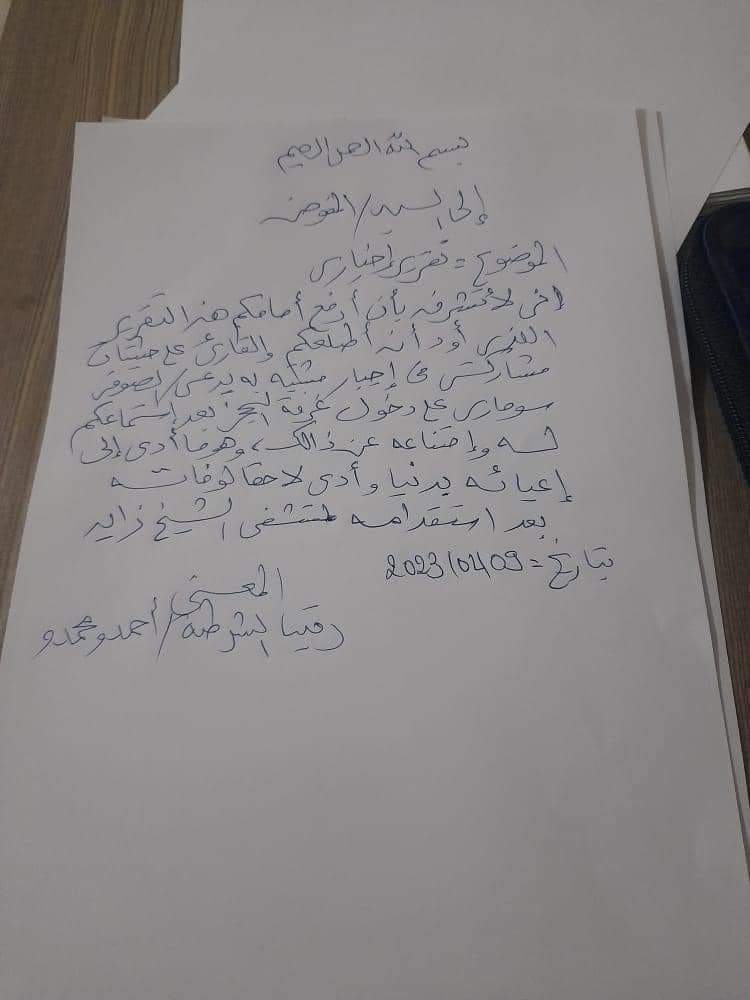 بسم الله الرحمن الرحيم
إلى السيد/المفوض
الموضوع = تقرير إخباري
إني لأتشرف بأن أرفع أمامكم هذا التقرير
الذي أود أن أطلعكم والقارئ على حيثيات
مشاركتي في إجبار مشتبه به يدعى/الصوفي
سوماري على دخول غرفة الحجز بعد إستماعكم
له وإمتناعه عن ذالك، وهو ما أدى إلى
إعيائه بدنيا وأدى لاحقا لوفاته
بعد استقدامه لمستشفى الشيخ زايد
بتاريخ = 2023/04/09
المعني
رقيب الشرطة/أحمدو محمدو